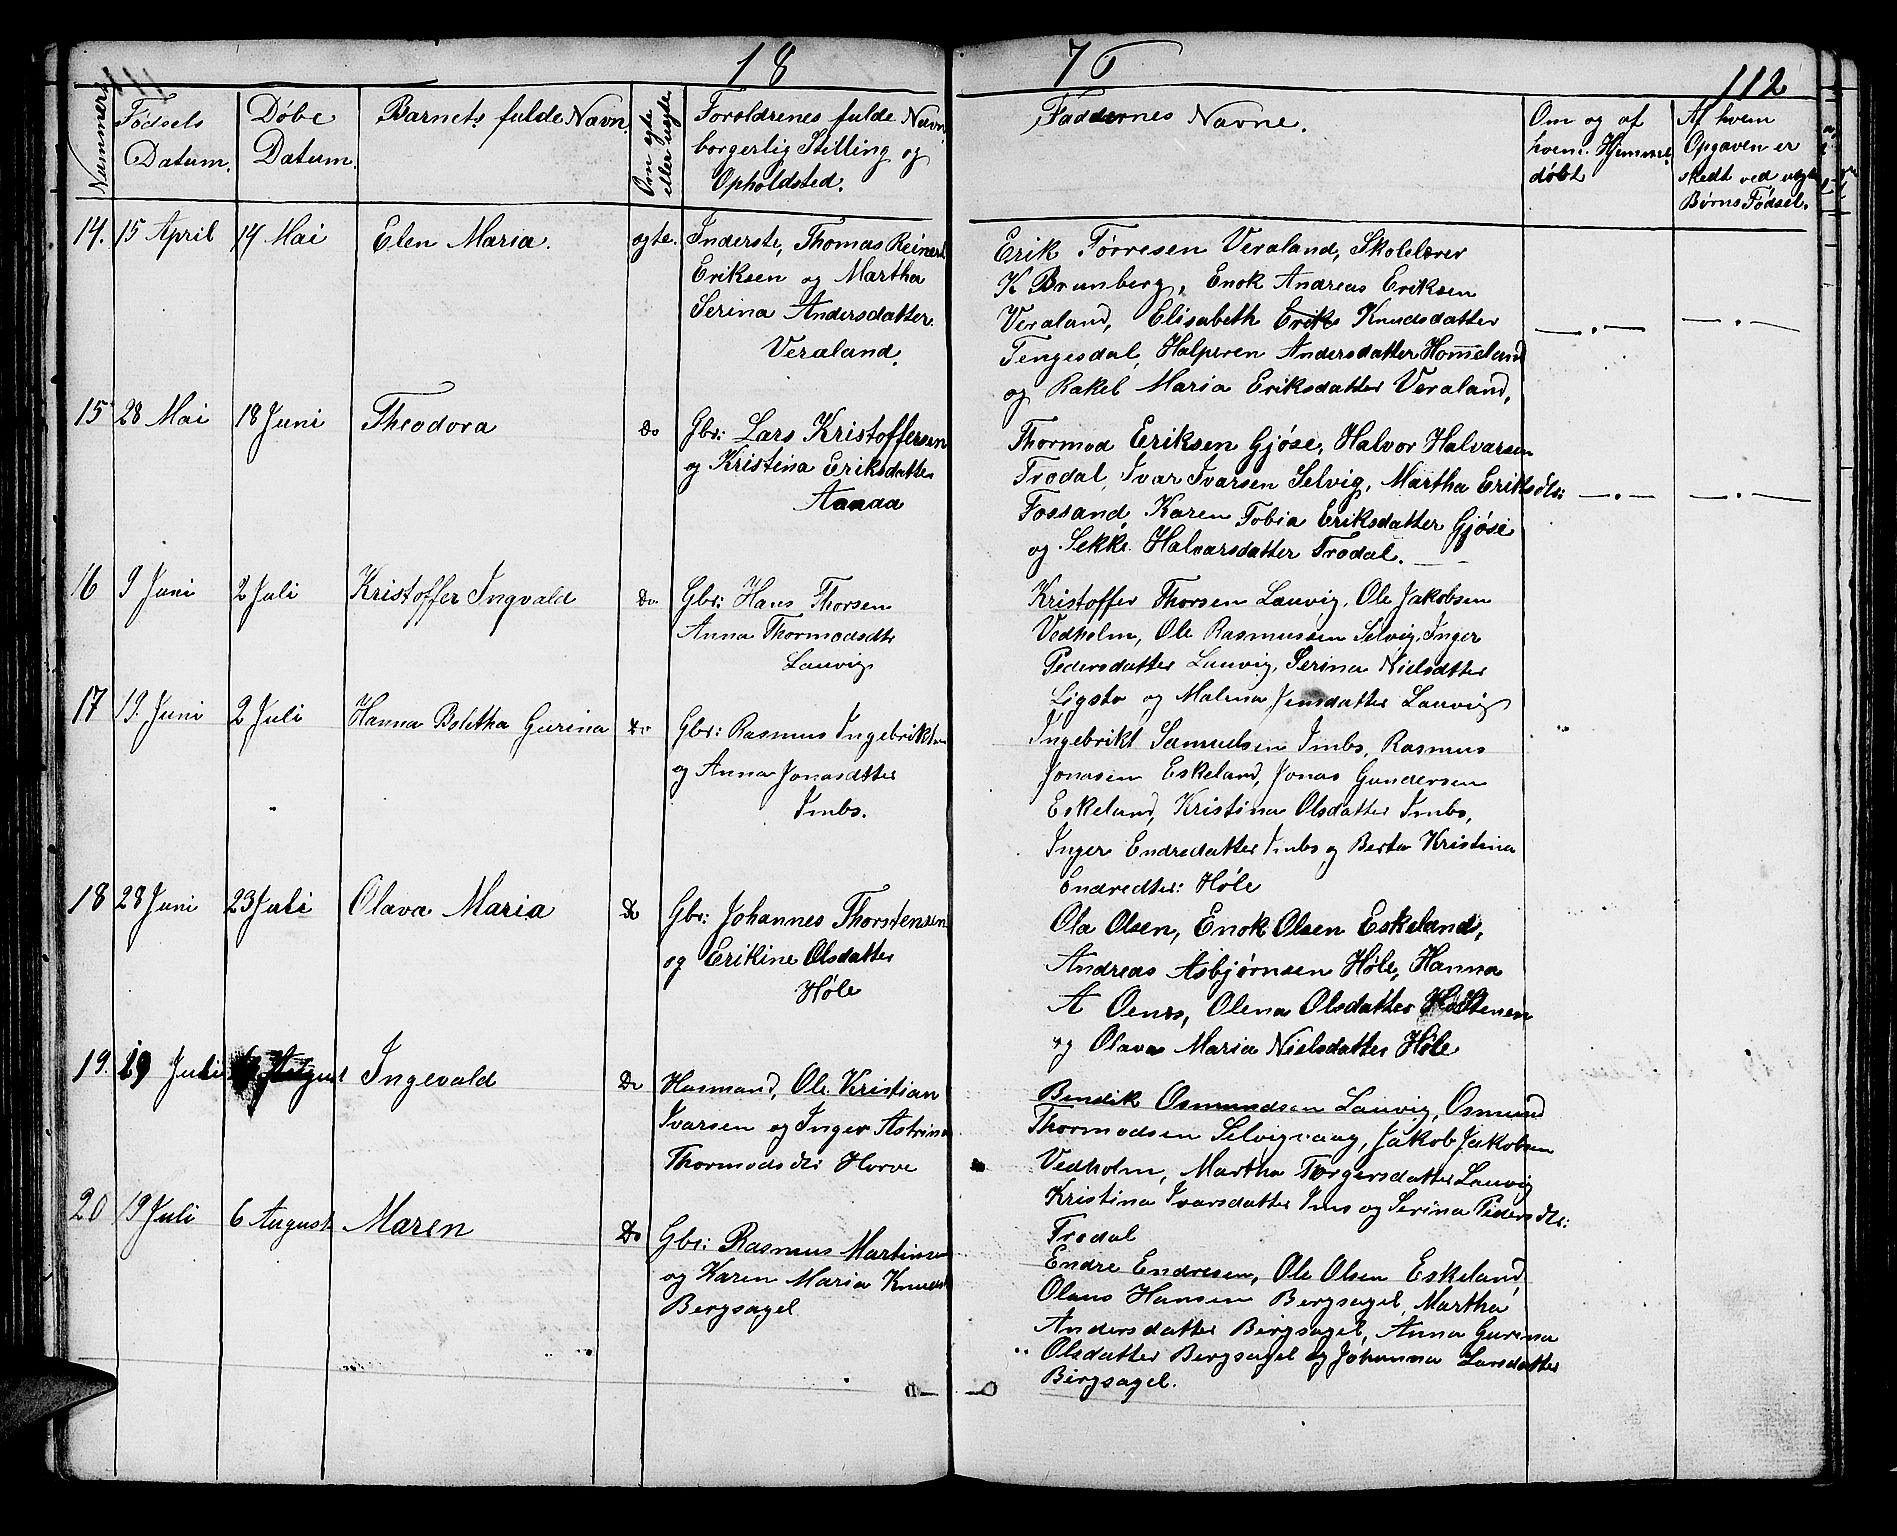 18 76
112
Nummer
Fødsels Datum.
Døbe Datum.
Barnets fulde Navn.
Om egte eller uegte
Foreldrenes fulde Navn
borgerlig Stilling og
Opholdsted.
Faddernes Navne.
Om og af
hvem Hjemme
døbt
Af hvem
Opgaven er
skedt ved uegte
Børns Fødsel.
14. 15 April 14 Mai Elen Maria. egte. Inderste, Thomas Reinert
Eriksen og Martha
Serina Andersdatter
Veraland.
Erik Tørresen Veraland, Skolelærer
K Brunberg, Enok Andreas Eriksen
Veraland, Elisabeth Eriks Knudsdatter
Tengesdal, Halperen Andersdatter Hommeland
og Rakel Maria Eriksdatter Veraland,
15 28 Mai 18 Juni Theodora do Gbr: Lars Kristoffersen
og Kristina Eriksdatter
Aanaa
Thormod Eriksen Gjøse, Halvor Halvarsen
Trodal, Ivar Ivarsen Selvig, Martha Eriksdtr:
Fossand, Karen Tobia Eriksdatter Gjøse
og Sekke Halvarsdatter Trodal.
16 9 Juni 2 Juli Kristoffer Ingvald do Gbr: Hans Thorsen
Anna Thormodsdtr
Lauvig
Kristoffer Thorsen Lauvig, Ole Jakobsen
Vedholm, Ole Rasmussen Selvig, Inger
Pedersdatter Lauvig, Serina Nielsdtter
Ligsto og Malena Jensdatter Lauvig
17 19. Juni 2 Juli Hanna Bolitha Gurina do Gbr: Rasmus Ingebriktsen
og Anna Jonasdtter
Imbs.
Ingebrikt Samuelsen Imbs, Rasmus
Jonasen Eskeland, Jonas Gundersen
Eskeland, Kristina Olsdatter Imbs,
Inger Endredatter Imbs og Berta Kristina
Endredter: Høle
18 28 Juni 23 Juli Olava Maria do Gbr: Johannes Thorstensen
og Erikine Olsdatter
Høle
Ola Olsen, Enok Olsen Eskeland,
Andreas Asbjørnsen Høle, Hanna
A Oenes, Olena Olsdatter
og Olava Maria Nielsdatter Høle
19. 19 Juli 6 August Ingevald Do Husmand, Ole Kristian
Ivarsen og Inger Astrina
Thormodsdtr Horve
Bendik Osmundsen Lauvig, Osmund
Thormodsen Selvigvaag, Jakob Jakobsen
Vedholm, Martha Torgersdatter Lauvig
Kristina Ivarsdatter Ims og Serina Pedersdtr:
Trodal
20 19 Juli 6 August Maren Do Gbr: Rasmus Martinsen
og Karen Maria Knudsd
Bergsagel
Endre Endresen, Ole Olsen Eskeland,
Olaus Hansen Bergsagel, Martha
Andersdatter Bergsagel, Anna Gurina
Olsdatter Bergsagel og Johanna Larsdatter
Bergsagel.